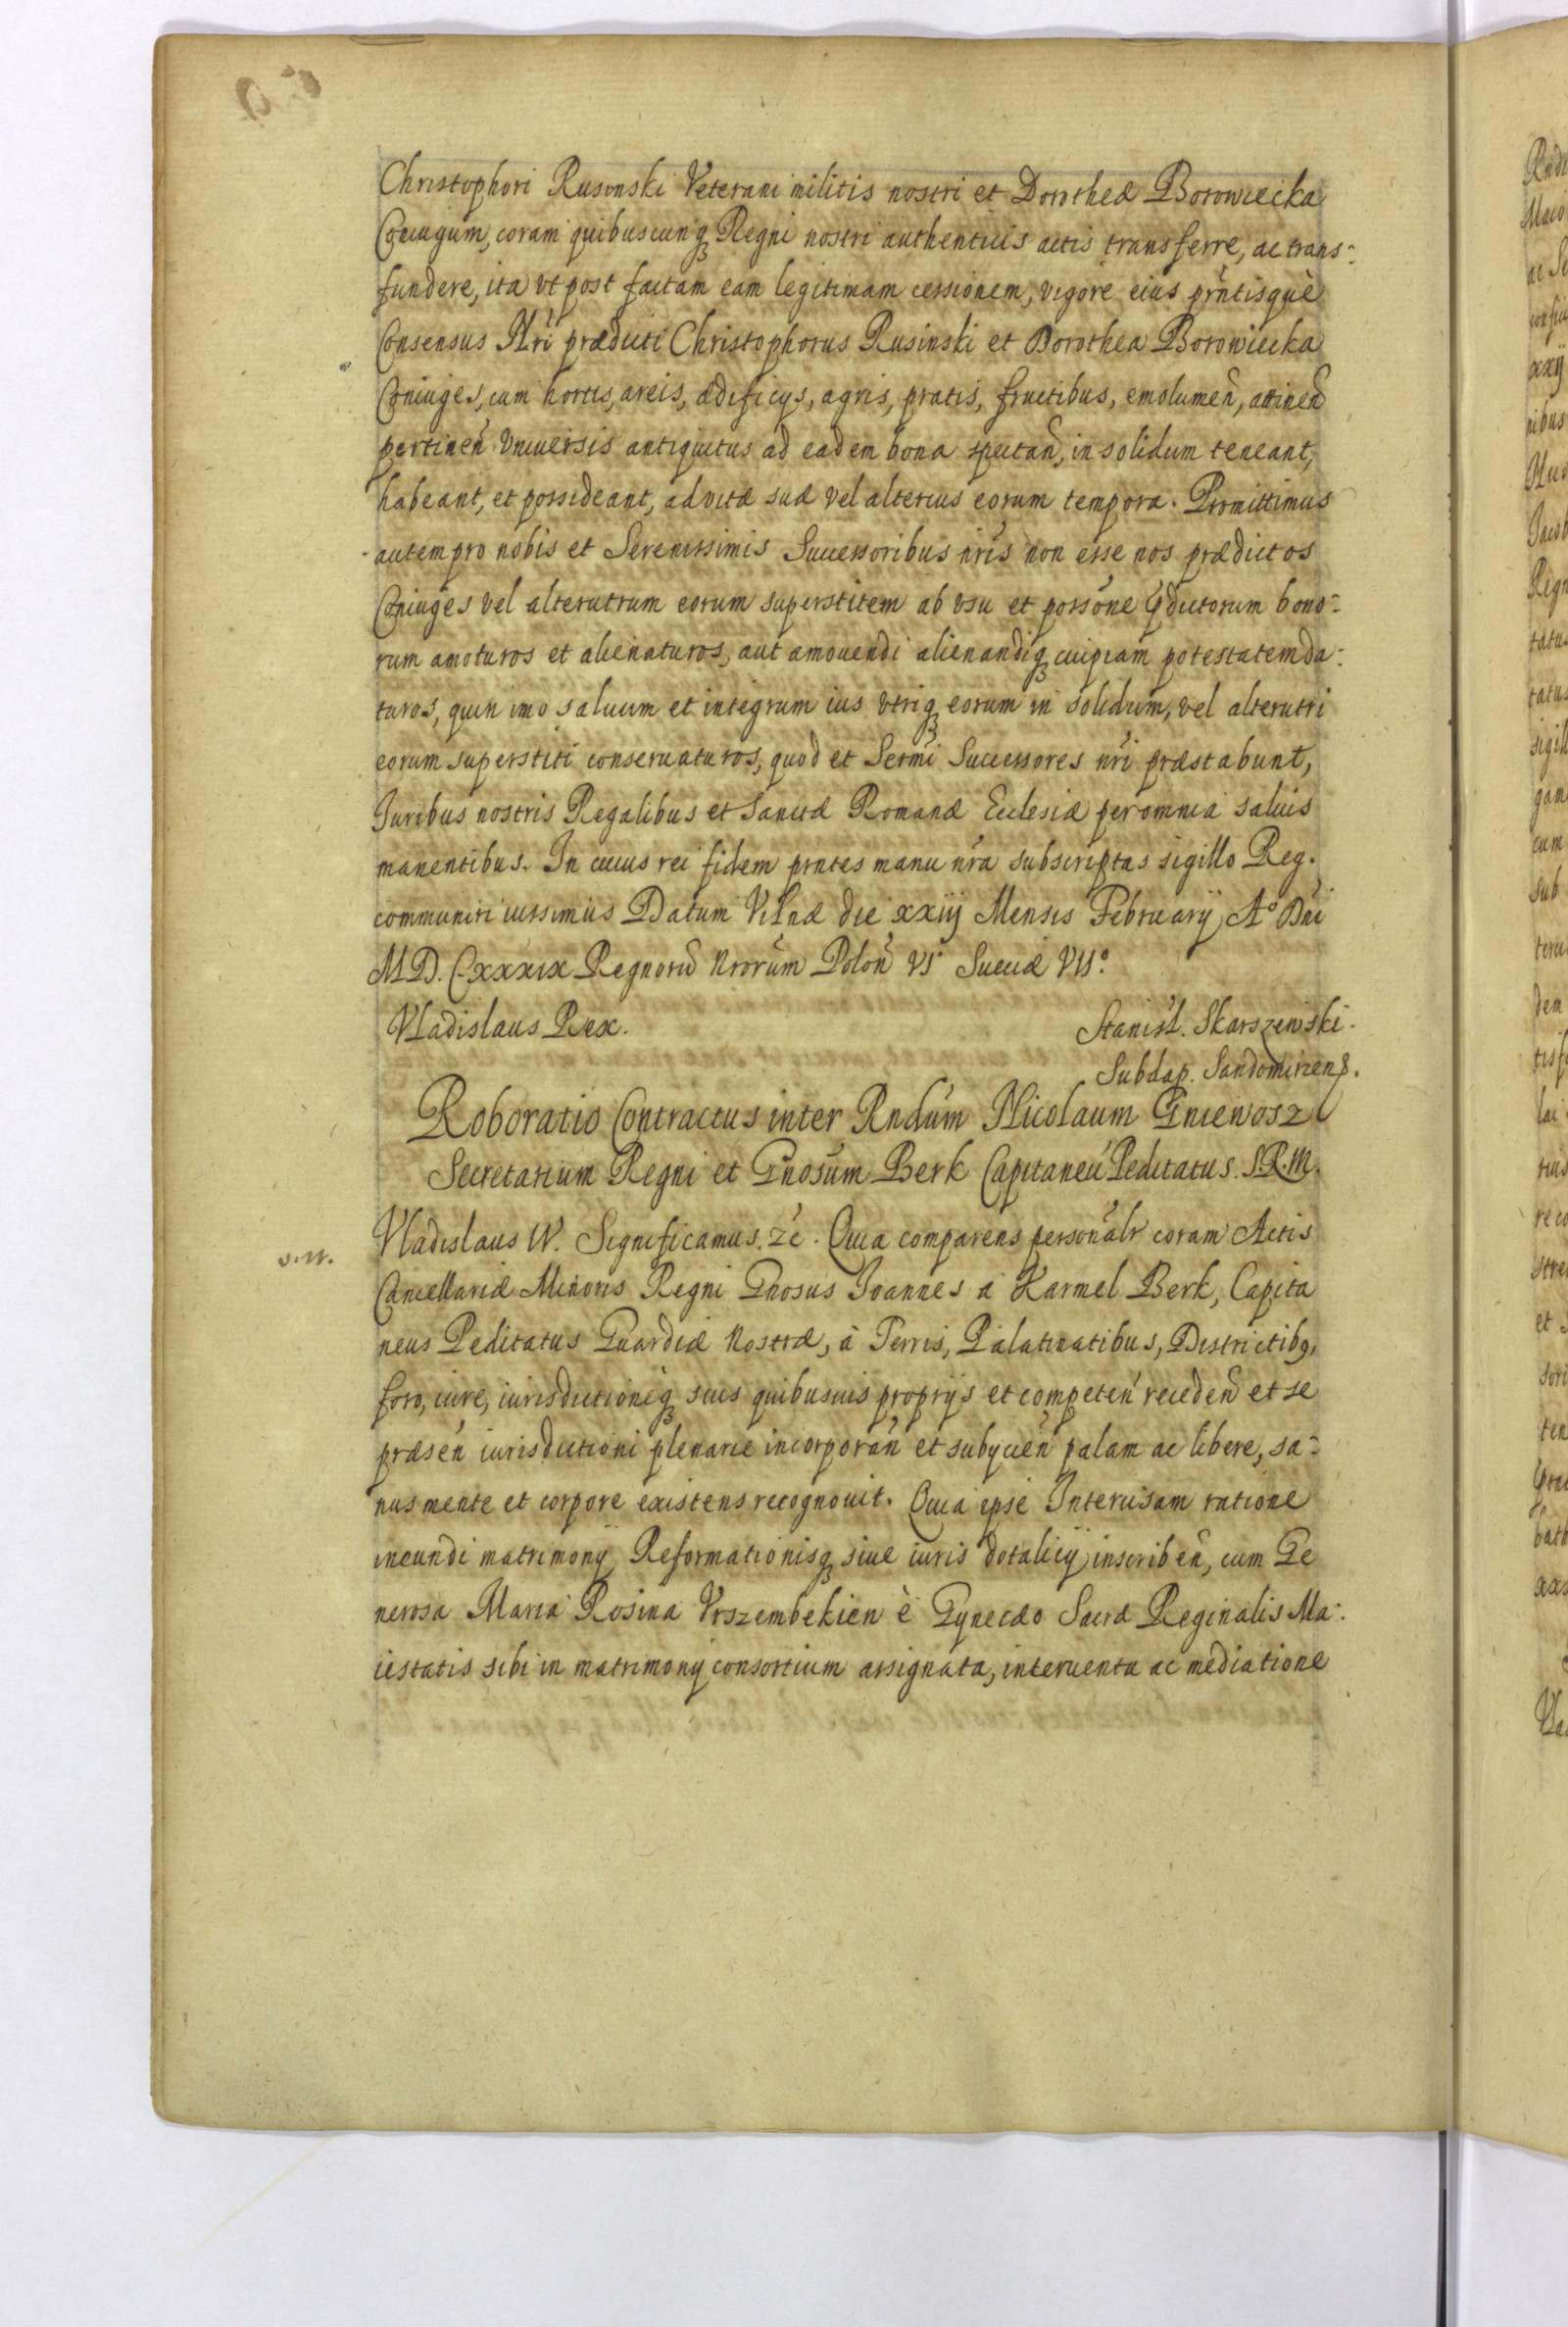 Christophori Rusinski Veterani militis nostri et Dorotheæ Borowiecka
Coniugum, coram quibuscunq Regni nostri authenticis actis transferre, ac trans-
fundere, ita vt post factam eam legitimam cessionem, vigore eius prñtisque
Consensus Nri prædicti Christophorus Rusinski et Dorothea Borowiecka
Coniuges, cum hortis, areis, ædificijs, agris, pratis, fructibus, emolumeñ, attineñ
pertineñ vniuersis antiquitus ad eadem bona spectañ, in solidum teneant,
habeant, et possideant, ad vitæ suæ vel alterius eorum tempora. Promittimus
autem pro nobis et Serenissimis Successoribus nris non esse nos prædictos
Coniuges vel alterutrum eorum superstitem ab vsu et possone pdictorum bono-
rum amoturos et alienaturos, aut amouendi alienandiq cuipiam potestatem da-
turos, quin imo saluum et integrum ius vtriq eorum in solidum, vel alterutri
eorum superstiti conseruaturos, quod et Sermi Successores nri præstabunt,
Iuribus nostris Regalibus et Sanctæ Romanæ Ecclesiæ per omnia saluis
manentibus. In cuius rei fidem prntes manu nra subscriptas sigillo Reg.
communiri iussimus Datum Vilnæ die xxiij Mensis February Aº Dni
MD. Cxxxix Regnorũ Nrorum Poloñ VIº Sueciæ VIIº
Vladislaus Rex.
Stanisł. Skarszewski.
Subdap. Sandomiriens.
Roboratio Contractus inter Rndum Nicolaum Gniewosz
Secretarium Regni et Gnosum Berk Capitaneũ Peditatus. S.R.M.
Vladislaus IV. Significamus. &c. Quia comparens personalr coram Actis
Cancellariæ Minoris Regni Gnosus Ioannes à Karmel Berk, Capita
neus Peditatus Guardiæ Nostræ, à Terris, Palatinatibus, Districtib9,
foro, iure, iurisdictioneq suis quibusuis proprijs et competeñ recedeñ et se
præseñ iurisdictioni plenarie incorporañ et subycieñ palam ac libere, sa-
nus mente et corpore existens recognouit. Quia ipse Intercisam ratione
ineundi matrimonij Reformationisq siue iuris dotalicij inscribeñ, cum Ge
nerosa Maria Rosina Vrszembekien è Gynecæo Sacræ Reginalis Ma-
iestatis sibi in matrimonij consortium assignata, interuentu ac mediatione